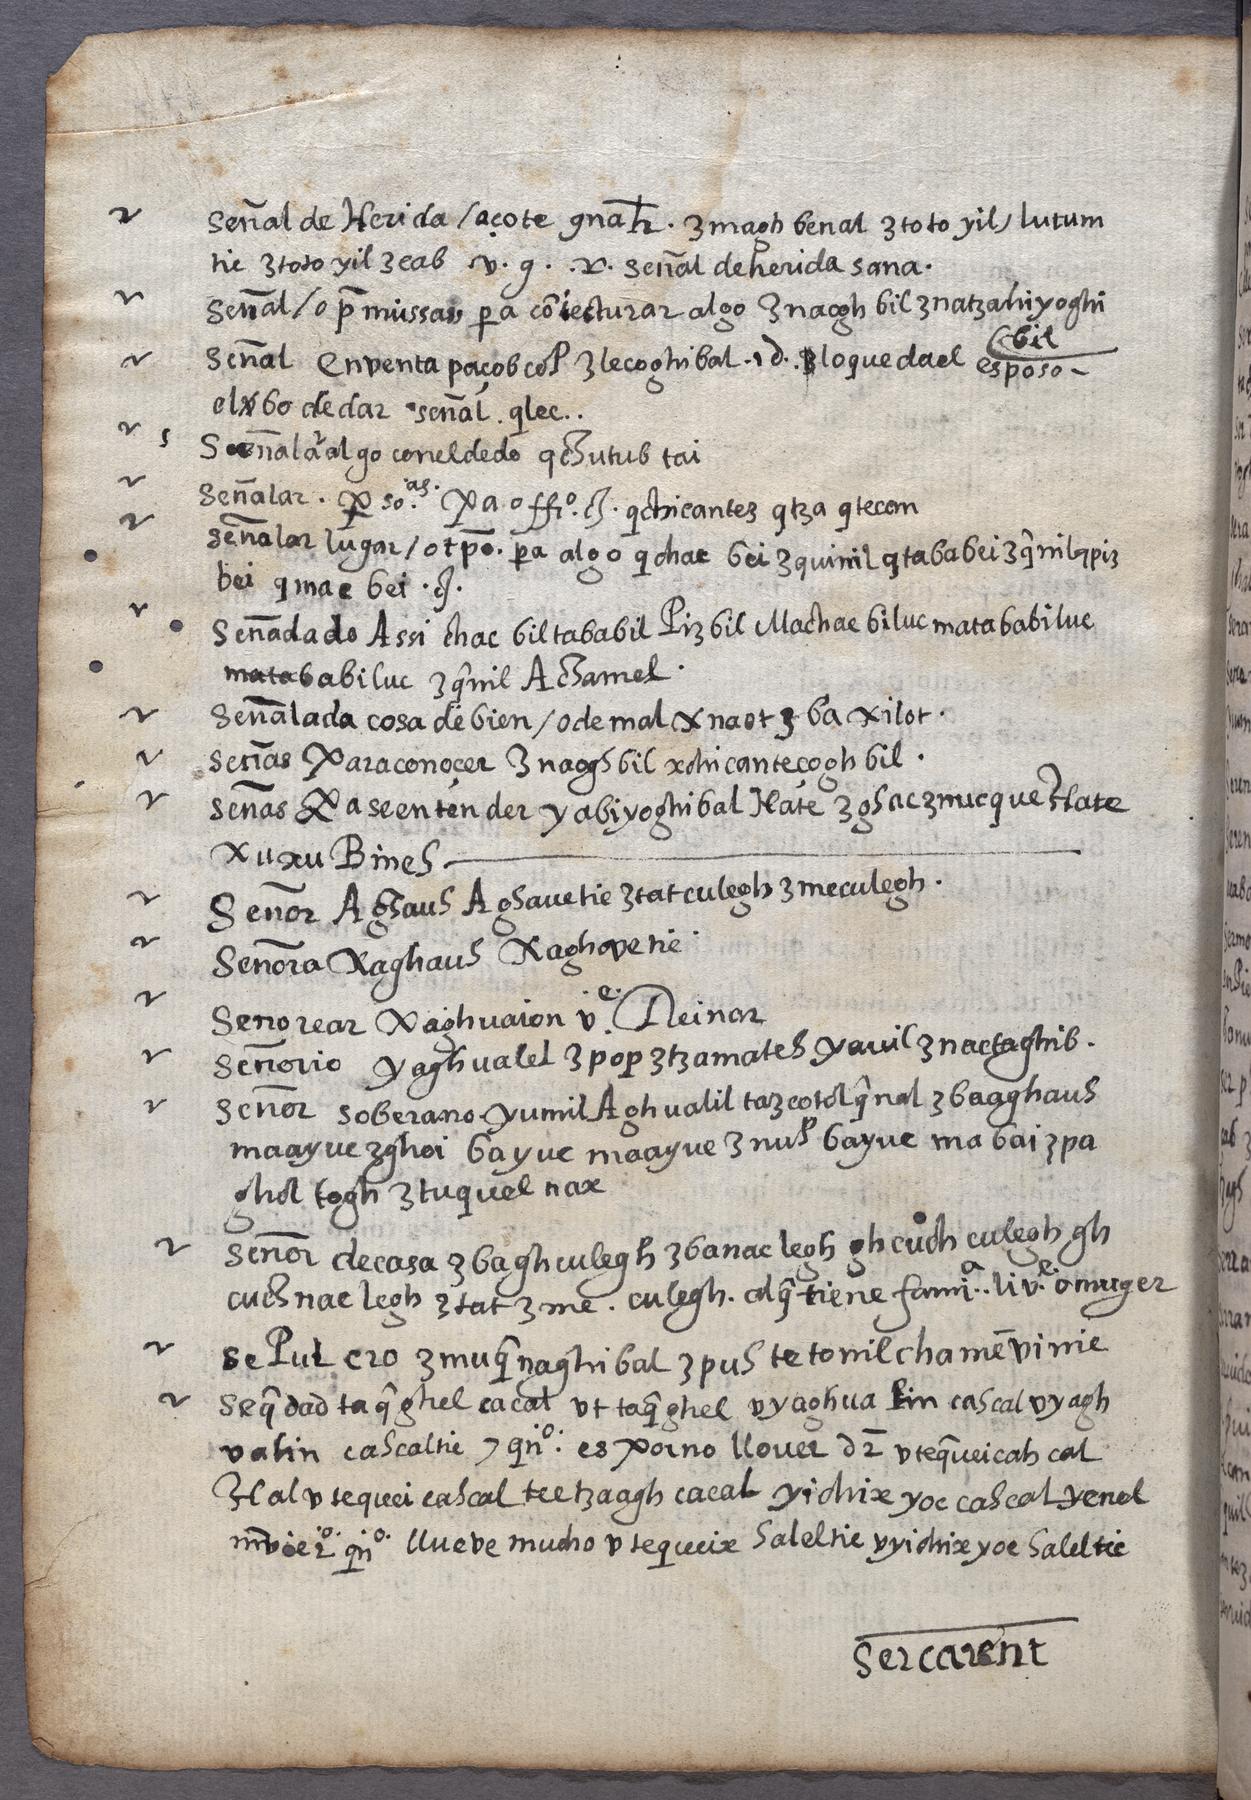 señal de Herida / açote gnah . ʒmagh benal ʒtoto yil / lutum
tie ʒtoto yil ʒcab v. g. .v. señal deherida sana.
señal / o p̄missas pa cōiecturar algo ʒnaogh bil ʒnatzahiyoghi
bil
señal enventa ʒlecoghibal .id. loquedael esposo
de dar señal . qlec..
Señalar algo coneldedo qchutub tai
señalar . qchicantez qtza qtecan
señalar lugar / otp̄o. pa algo qchac bei ʒquinil qtababei ʒq̄nil qpiz
bei qmac bei .
señadado Assi chac biltababil Pizbil Machac biluc matababiluc
matababiluc ʒq̄nil Achamel .
señalada cosa debien / ode mal xnaot ʒba xilot .
señas Paraconoçer ʒnaoghbil xchicanteçogh bil .
señas Pa seentender yabiyoghibal Hate ʒghacʒmucque Hate
xuxu Bineh
Señor Aghauh Aghauetic ʒtatculegh ʒmeculegh .
Señora Xaghauh Xaghovetic .
Senorear Xaghuaion v.e Reinar
señorio yaghualel ʒpop ʒtzamateh yauil ʒnactaghib .
señor soberano yumil Aghualil taʒcotolq̄nal ʒbaaghauh
maayuc ʒghoi bayuc maayuc ʒnuP bayuc ma bai ʒpa
ghol togh ʒtuquel nax
señor decasa ʒbaghculegh ʒbanac legh ghcuch culegh gh
cuchnac legh ʒtat ʒme . culegh . alq̄ tiene famia.. li v.e o muger
sePulcro ʒmuq̄naghibal ʒpuh tetonilchamēvinic
seq̄dad taq̄ghel cacal vt taq̄ghel vyaghua lin cahcal vyagh
valin cahcaltic 7 qn̄o: es Porno llover dr̄ vteq̄ueicah cal
Hal vtequei cahcal tectzaagh cacal yichix yoc cahcal yenal
qn̄o. llueve mucho vtequeix haleltic vyichix yoc haleltic
sercarent